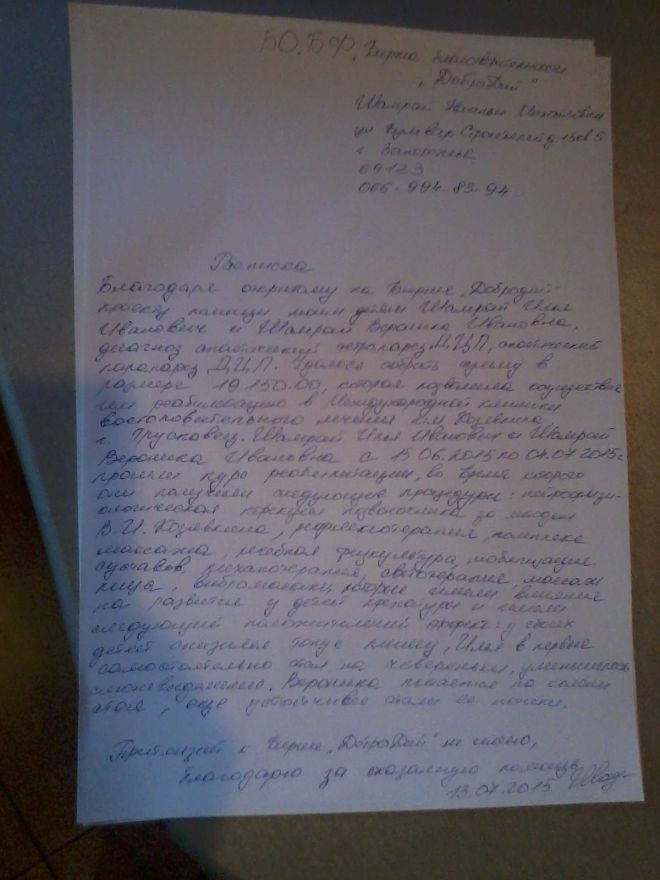 БО. БФ „Биржа благотворительности
„ДоброДий"
Шамрай Натальи Михайловны
ул Бульвар Строителей д 15 кв 5
г. Запорожье
69123
066-994-83-94
Расписка
Благодаря открытому на Бирже „Добродий"
проекту помощи моим детям Шамрай Илье
Ивановичу и Шамрай Веронике Ивановне,
диагноз спастический тетрапарез ДЦП, спастический
парапарез ДЦП. Удалось собрать сумму в
размере 19.150.00, которая позволила осуществи
ть реабилитацию в Международной клинике
востоновительного лечения им. Козявкина
г. Трусковец. Шамрай Илья Иванович и Шамрай
Вероника Ивановна с 15 06.2015 по 04.07.2015г
прошли курс реабилитации, во время которого
они получили следующие процедуры: нейрофизи-
ологическая корекция позвоночника за методом
В. И. Козявкина, рефлексотерапия, комплекс
массажа, лечебная физкультура, мобилизация
суставов, механотерапия, светотерапия, массаж
лица, вибромассаж, которые имели влияние
на развитие у детей и имели
следующий положительный эффект: у обоих
детей снизился тонус мышц, Илья в первые
самостоятельно стал на четвереньки, уменьшилось
слюневыделение. Вероника пытается по
стоя, еще устойчивее стали ее ножки.
Притензий к Бирже „ДоброДий" не имею,
Благодарю за оказанную помощь
13.07.2015